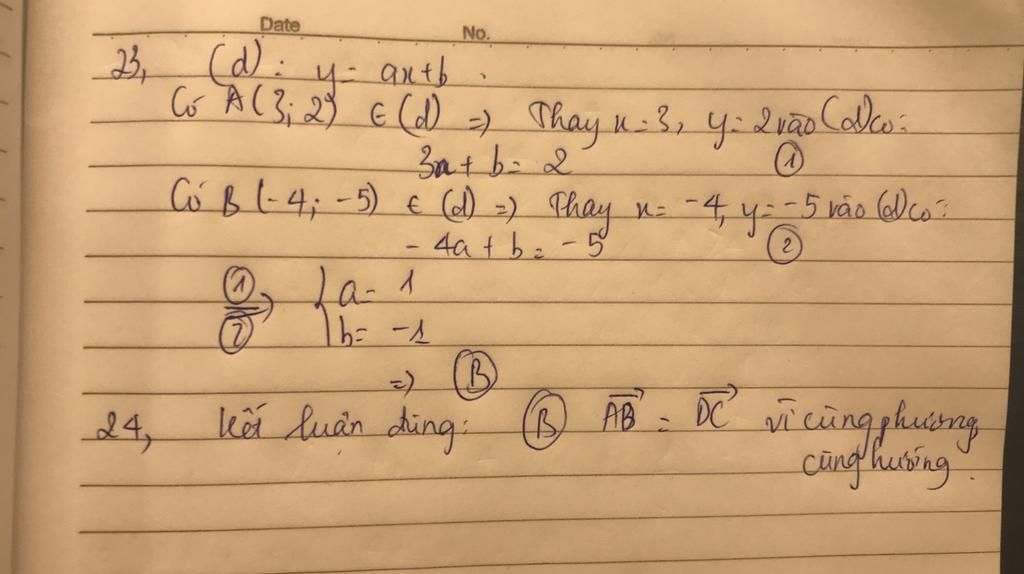 Date No.
23, (d): y = ax+b.
Có A(3; 2) ∈ (d) => Thay x=3, y=2 vào (d) có:
3a + b = 2 ①
Có B (-4; -5) ∈ (d) => Thay x= -4, y= -5 vào (d) có:
- 4a + b = -5 ②
① a = 1
② b = -1
=> Ⓑ
24, Kết luận đúng: Ⓑ AB→ = DC→ vì cùng phương,
cùng hướng.